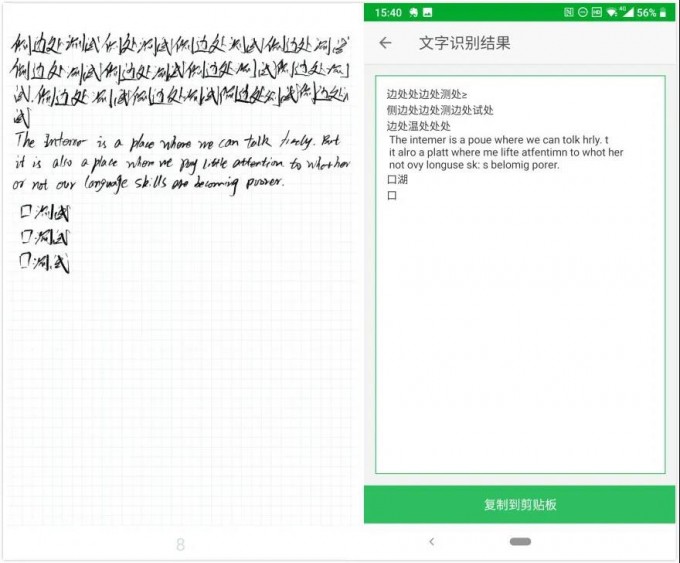 侧边处测试侧边处测试侧边处测试侧边处测试
侧边处测试侧边处测试侧边处测试侧边处测
试侧边处测试侧边处测试侧边处测试侧边处
试
The Internet is a place where we can talk freely. But
it is also a place where we pay little attention to whether
or not our language skills are becoming poorer.
口测试
口测试
口测试
8
15:40
56%
文字识别结果
边处处边处测处≥
侧边处边处测边处试处
边处温处处处
The intemer is a poue where we can tolk hrly. t
it alro a platt where me lifte atfentimn to whot her
not ovy longuse sk: s belomig porer.
口湖
口
复制到剪贴板